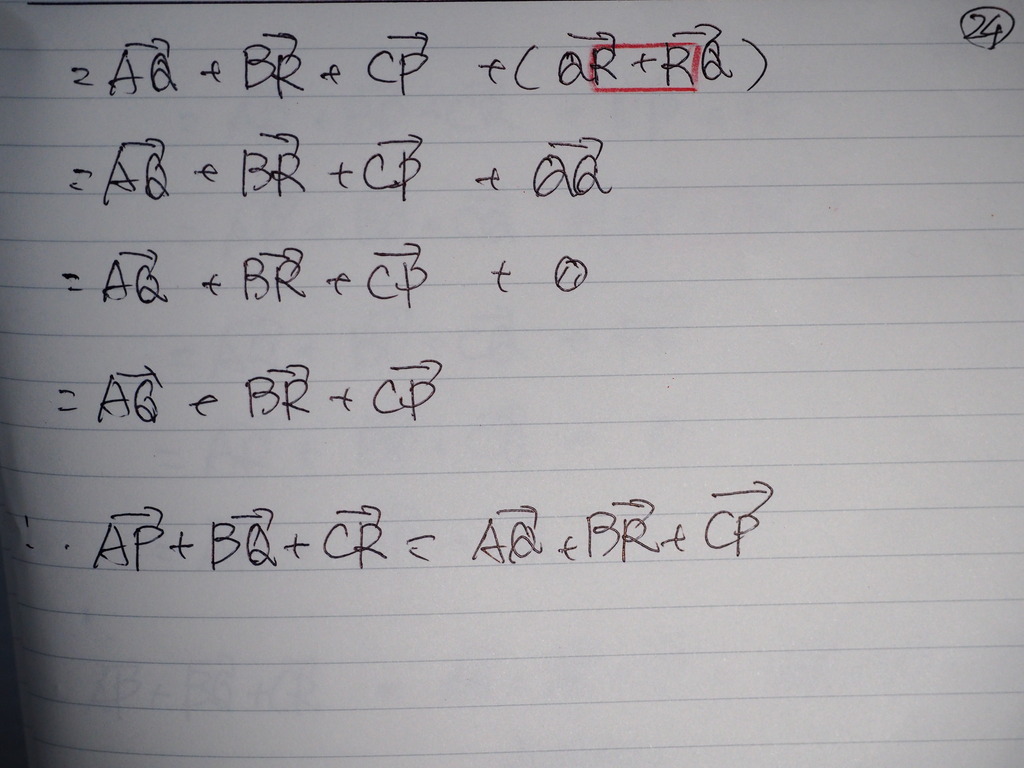 24
= AQ⃗ + BR⃗ + CP⃗ + (QR⃗ + RQ⃗)
= AQ⃗ + BR⃗ + CP⃗ + QQ⃗
= AQ⃗ + BR⃗ + CP⃗ + 0
= AQ⃗ + BR⃗ + CP⃗
∴ AP⃗ + BQ⃗ + CR⃗ = AQ⃗ + BR⃗ + CP⃗